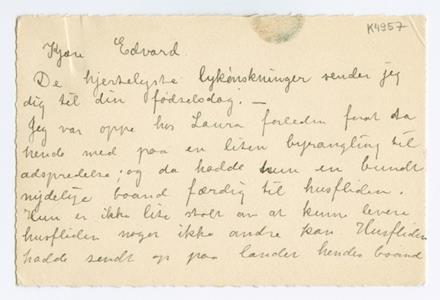 K4957
Kjære Edvard.
De hjerteligste lykønskninger sender jeg
dig til din fødselsdag. —
Jeg var oppe hos Laura forleden forat da
hende med paa en liten byrangling til
adspredelse; og da hadde hun en bundt
nydelige baand færdig til husfliden.
Hun er ikke lite stolt av at kunne levere
husfliden noget ikke andre kan. Husfliden
hadde sendt op paa landet hendes baand